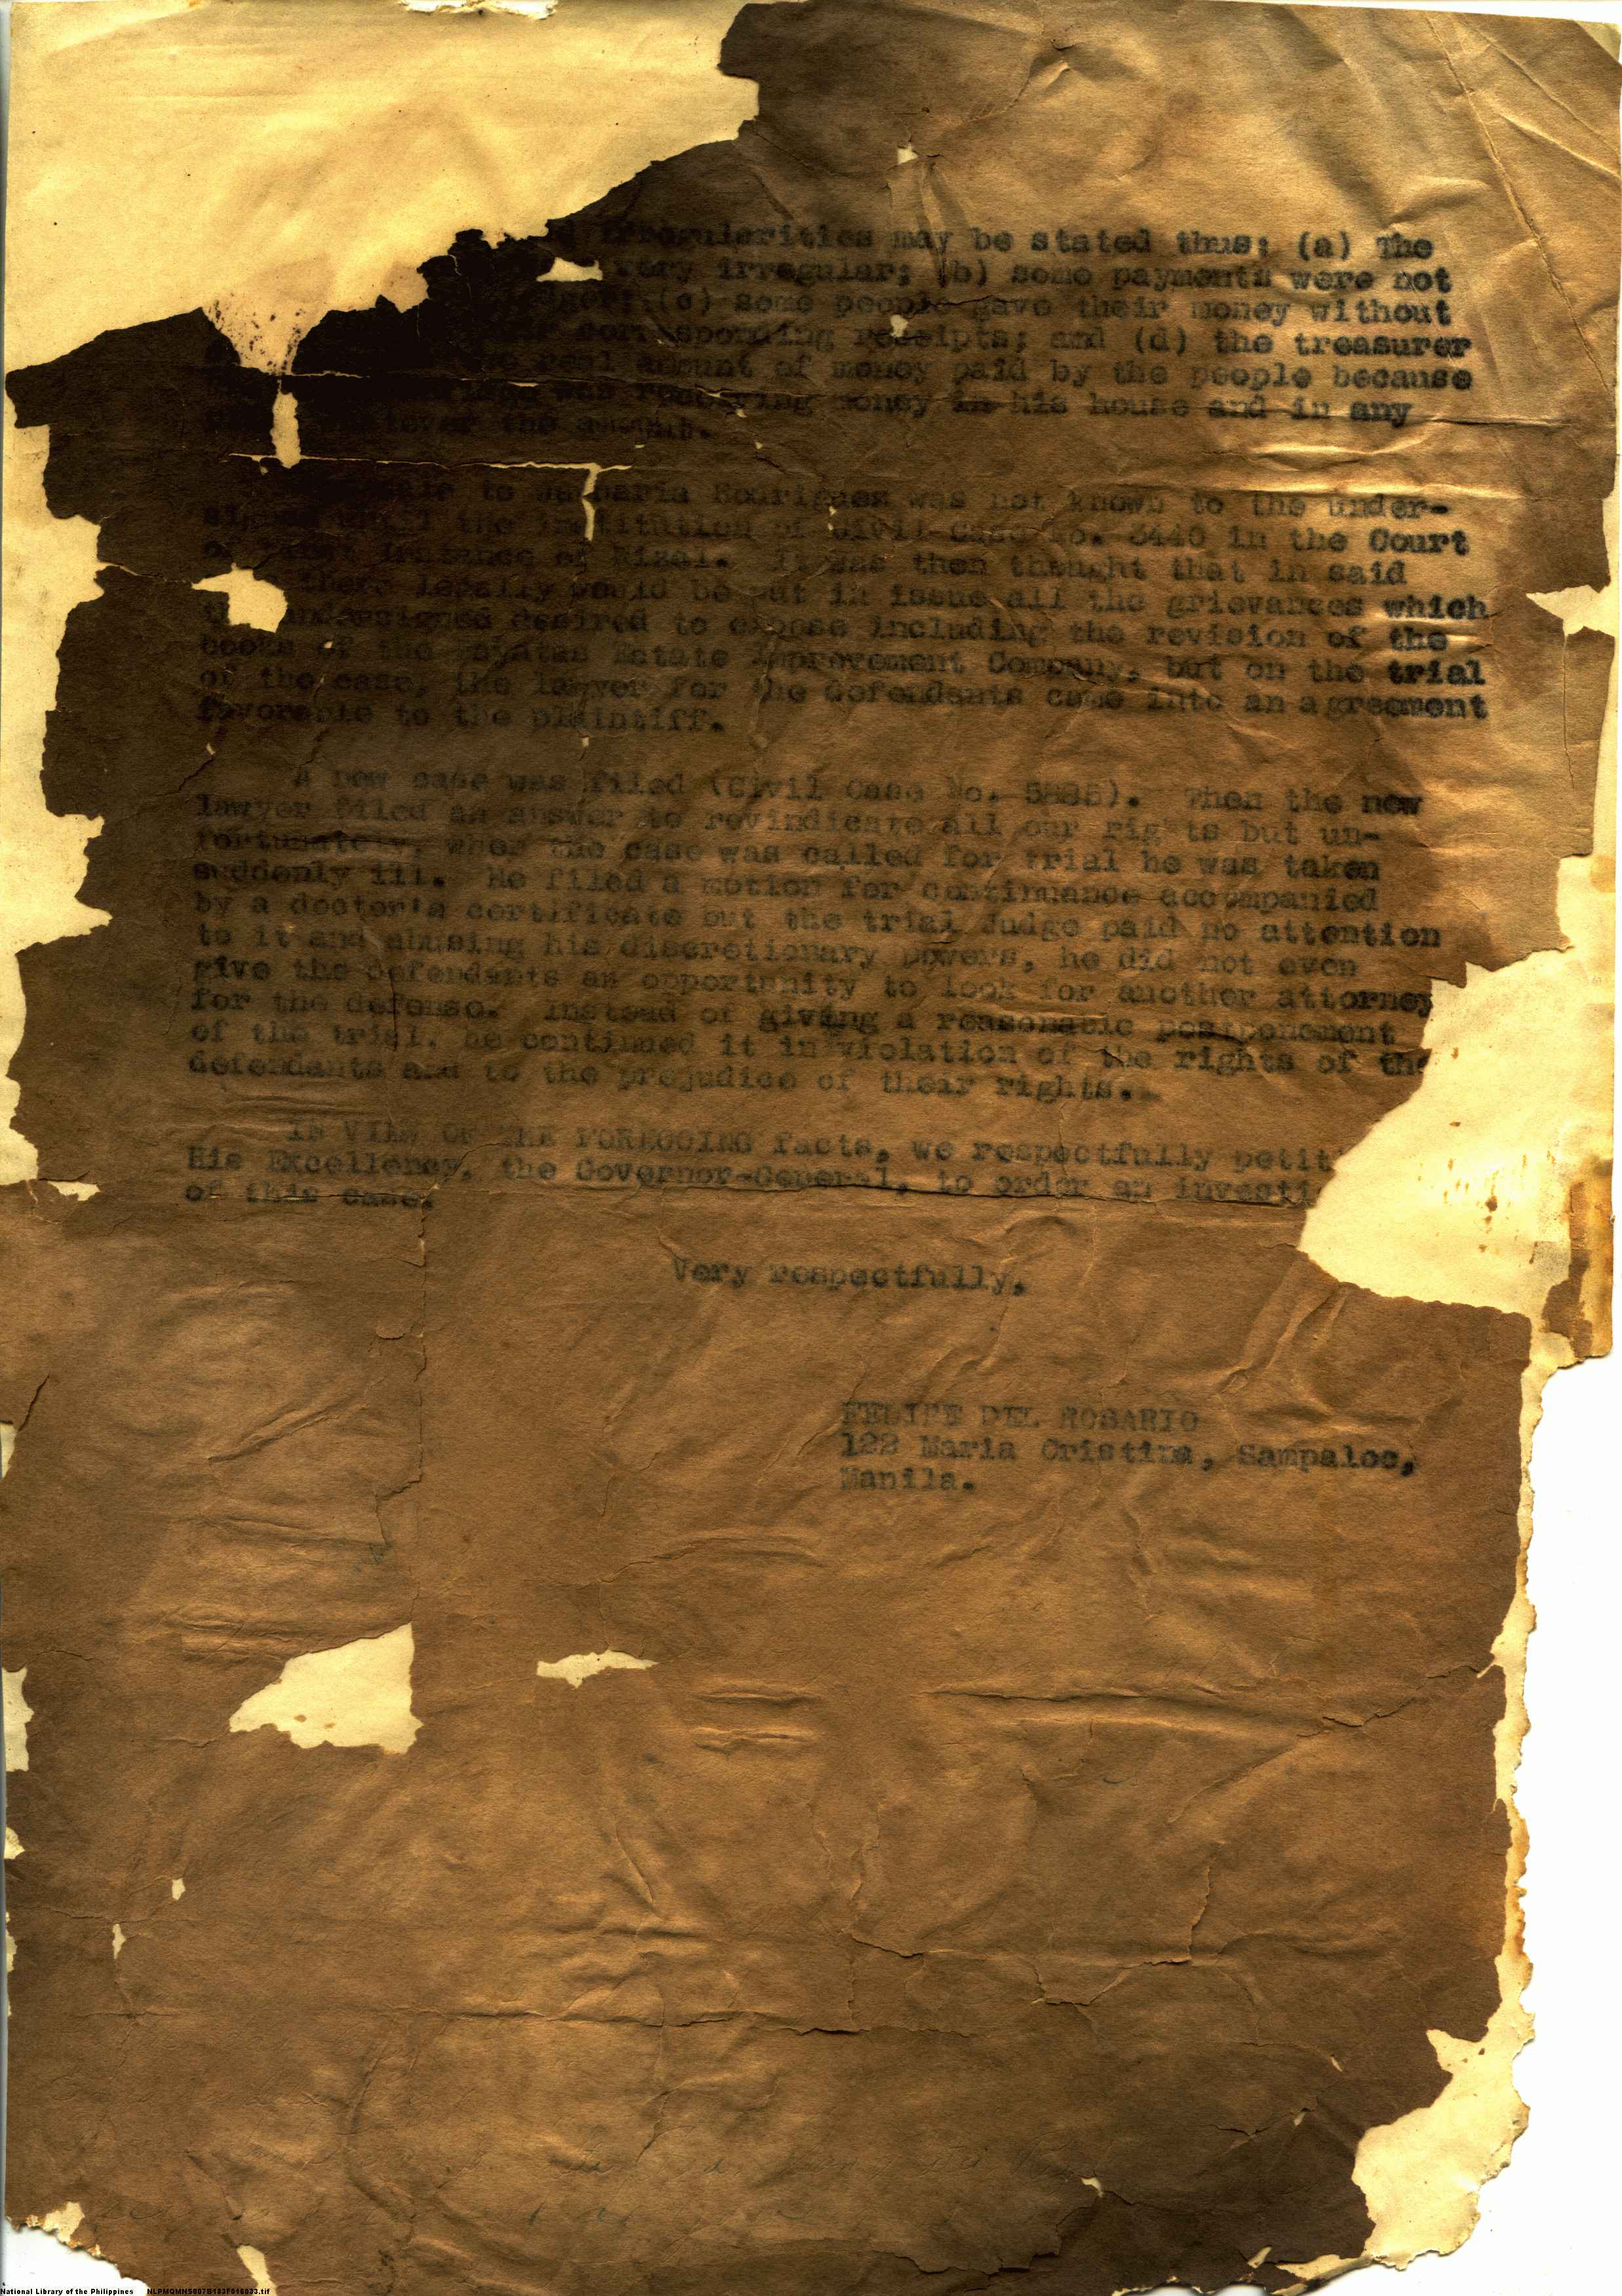 irregularities may be stated thus: (a) The
very irregular; (b) some payments were not
(c) some people gave their money without
corresponding receipts; and (d) the treasurer
real amount of money paid by the people because
was receiving money in his house and in any
the amount.
to Maria Rodriguez was not known to the under-
signed until the institution of Civil Case No. 3440 in the Court
of First Instance of Rizal. It was then thought that in said
there legally would be put in issue all the grievances which
the undersigned desired to expose including the revision of the
books of the Payatas Estate Improvement Company, but on the trial
of the case, the lawyer for the defendants came into an agreement
favorable to the plaintiff.
A new case was filed (Civil Case No. 5885). Then the new
lawyer filed an answer to revindicate all our rights but un-
fortunately, when the case was called for trial he was taken
suddenly ill. He filed a motion for continuance accompanied
by a doctor's certificate but the trial Judge paid no attention
to it and abusing his discretionary powers, he did not even
give the defendants an opportunity to look for another attorney
for the defense. Instead of giving a reasonable postponement
of the trial, he continued it in violation of the rights of the
defendants and to the prejudice of their rights.
IN VIEW OF THE FOREGOING facts, we respectfully petit
His Excellency, the Governor-General, to order an investi
of this case.
Very respectfully,
FELIPE DEL ROSARIO
122 Maria Cristina, Sampaloc,
Manila.
National Library of the Philippines